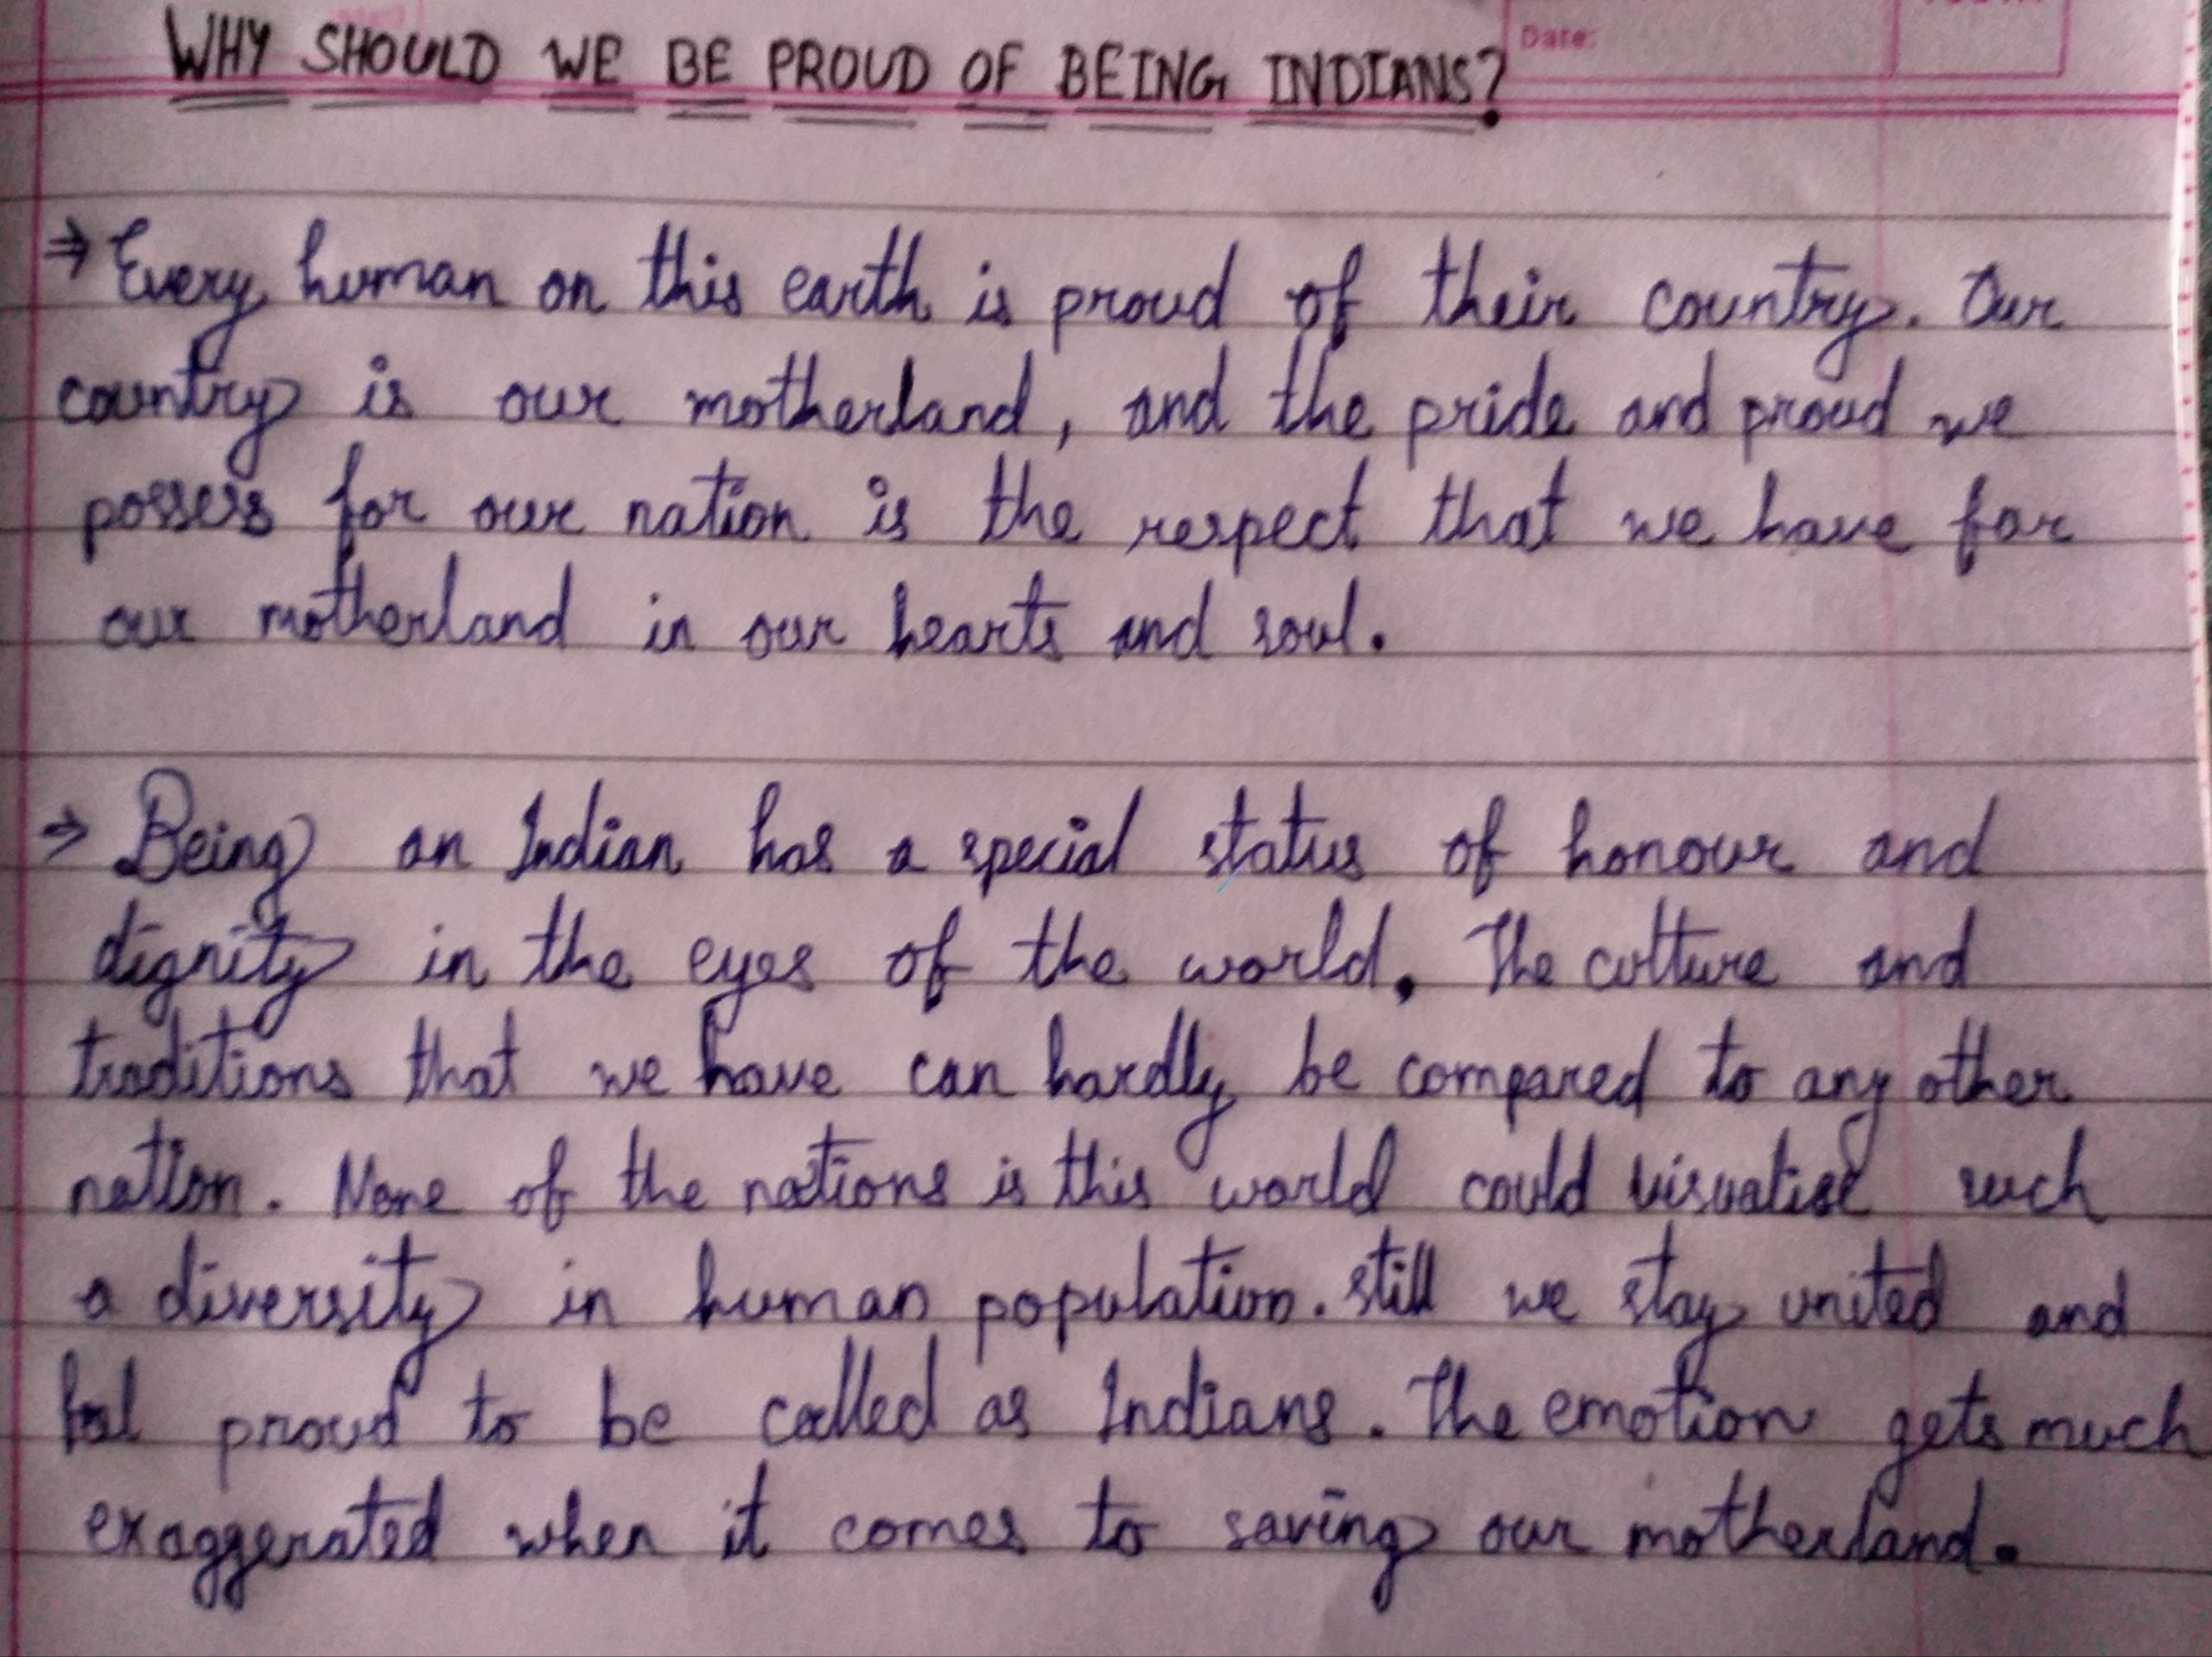 Date:
WHY SHOULD WE BE PROUD OF BEING INDIANS?
⇒ Every human on this earth is proud of their country. Our
country is our motherland, and the pride and proud we
possess for our nation is the respect that we have for
our motherland in our hearts and soul.
⇒ Being an Indian has a special status of honour and
dignity in the eyes of the world. The culture and
traditions that we have can hardly be compared to any other
nation. None of the nations is this world could visualise such
a diversity in human population. still we stay united and
proud to be called as Indians. The emotion gets much
exaggerated when it comes to saving our motherland.